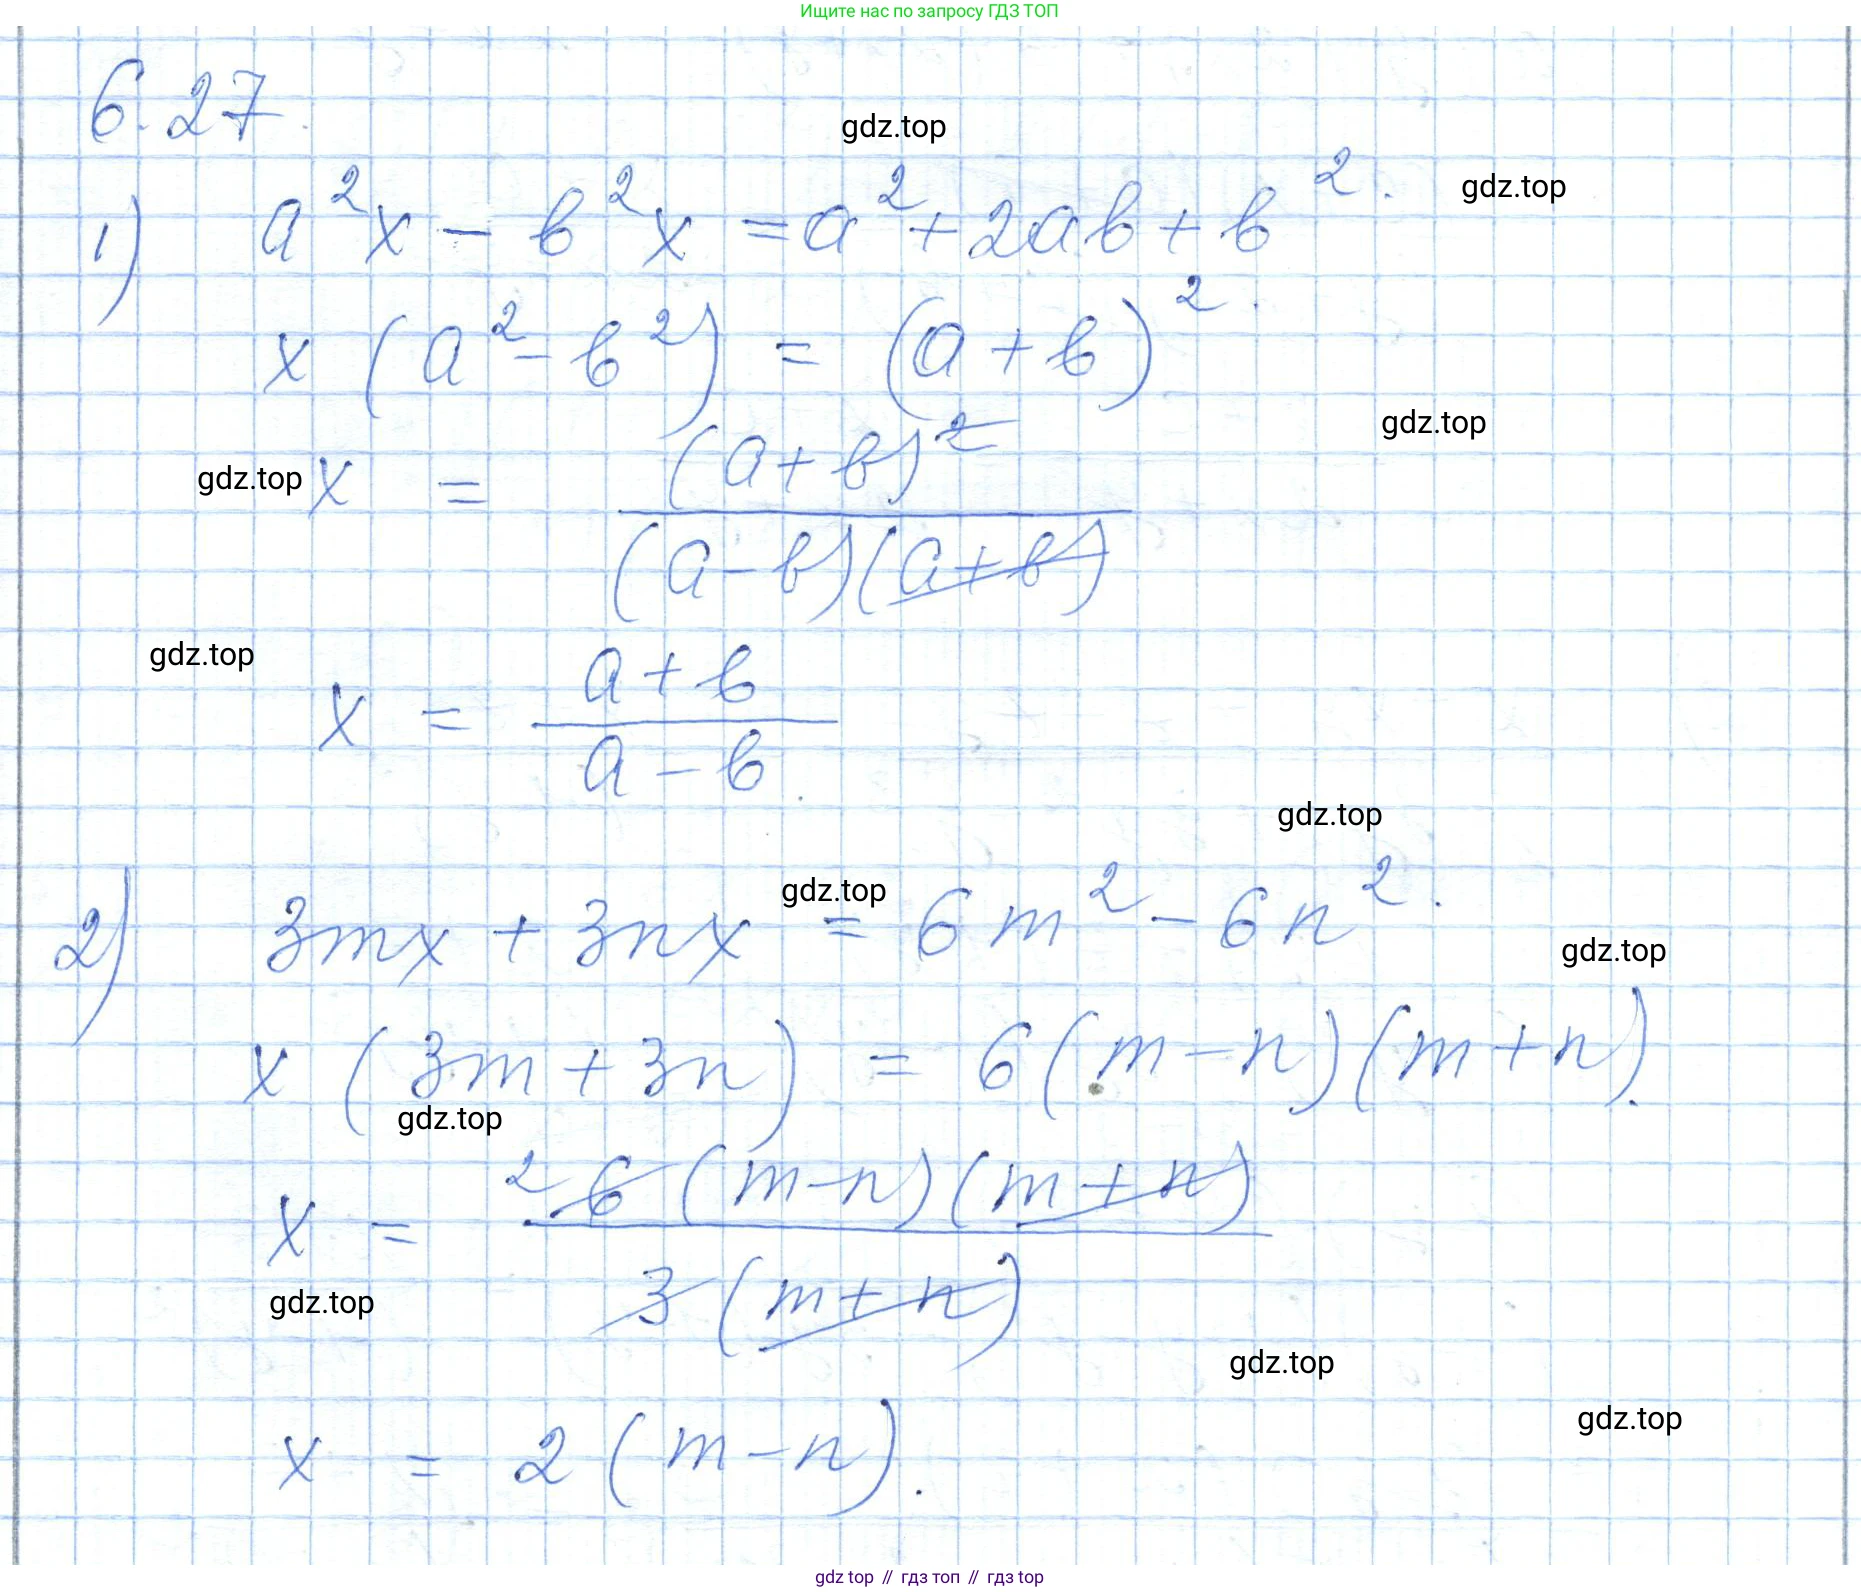 Ищите нас по запросу ГДЗ ТОП
6.27.
gdz.top
1) a²x - b²x = a² + 2ab + b².
gdz.top
x (a² - b²) = (a + b)².
gdz.top
gdz.top
x = (a + b)² / (a - b)(a + b)
gdz.top
x = a + b / a - b.
gdz.top
gdz.top
2) 3mx + 3nx = 6m² - 6n².
gdz.top
x (3m + 3n) = 6 (m - n)(m + n).
gdz.top
x = ² 6 (m - n)(m + n) / 3 (m + n)
gdz.top
gdz.top
gdz.top
x = 2 (m - n).
gdz top // гдз топ // гдз top